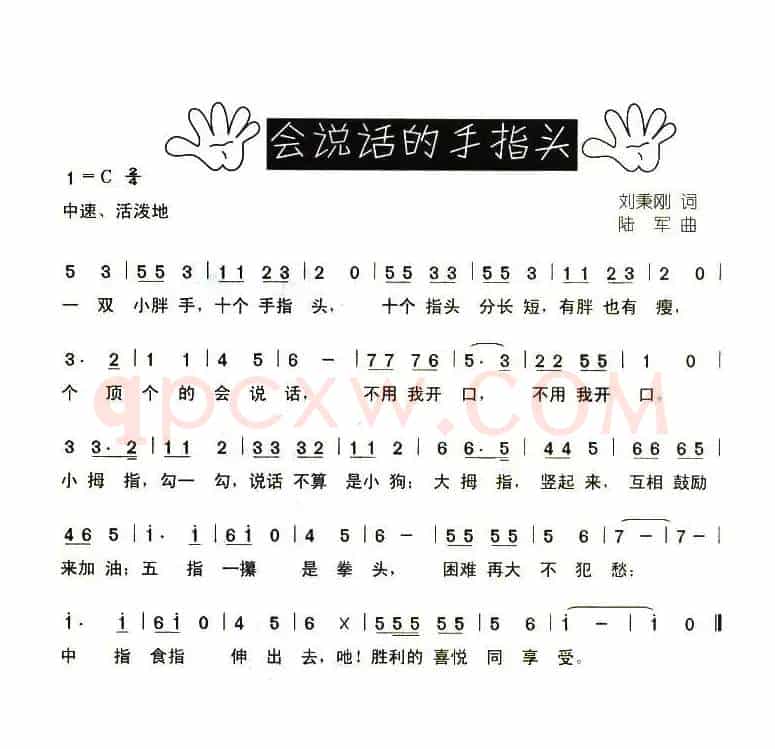 会说话的手指头
1=C 2/4
中速、活泼地
刘秉刚 词
陆 军 曲
5 3 | 55 3 | 11 23 | 2 0 | 55 33 | 55 3 | 11 23 | 2 0 |
一 双 小胖 手, 十个 手指 头, 十个 指头 分长 短, 有胖 也有 瘦,
3· 2 | 1 1 | 4 5 | 6 – | 77 76 | 5· 3 | 22 55 | 1 0 |
个 顶 个 的 会 说 话, 不用 我开 口, 不用 我开 口。
3 3·2 | 11 2 | 33 32 | 11 2 | 6 6·5 | 44 5 | 66 65 |
小 拇 指, 勾一 勾, 说话 不算 是小 狗; 大 拇 指, 竖起 来, 互相 鼓励
46 5 | i· i | 6i 0 | 4 5 | 6 – | 55 55 | 5 6 | 7 – | 7 – |
来加 油; 五 指 一攥 是 拳 头, 困难 再大 不 犯 愁;
i· i | 6i 0 | 4 5 | 6 X | 555 55 | 5 6 | i – | i 0 ‖
中 指 食指 伸 出 去, 吔! 胜利的 喜悦 同 享 受。
qpcxw.COM